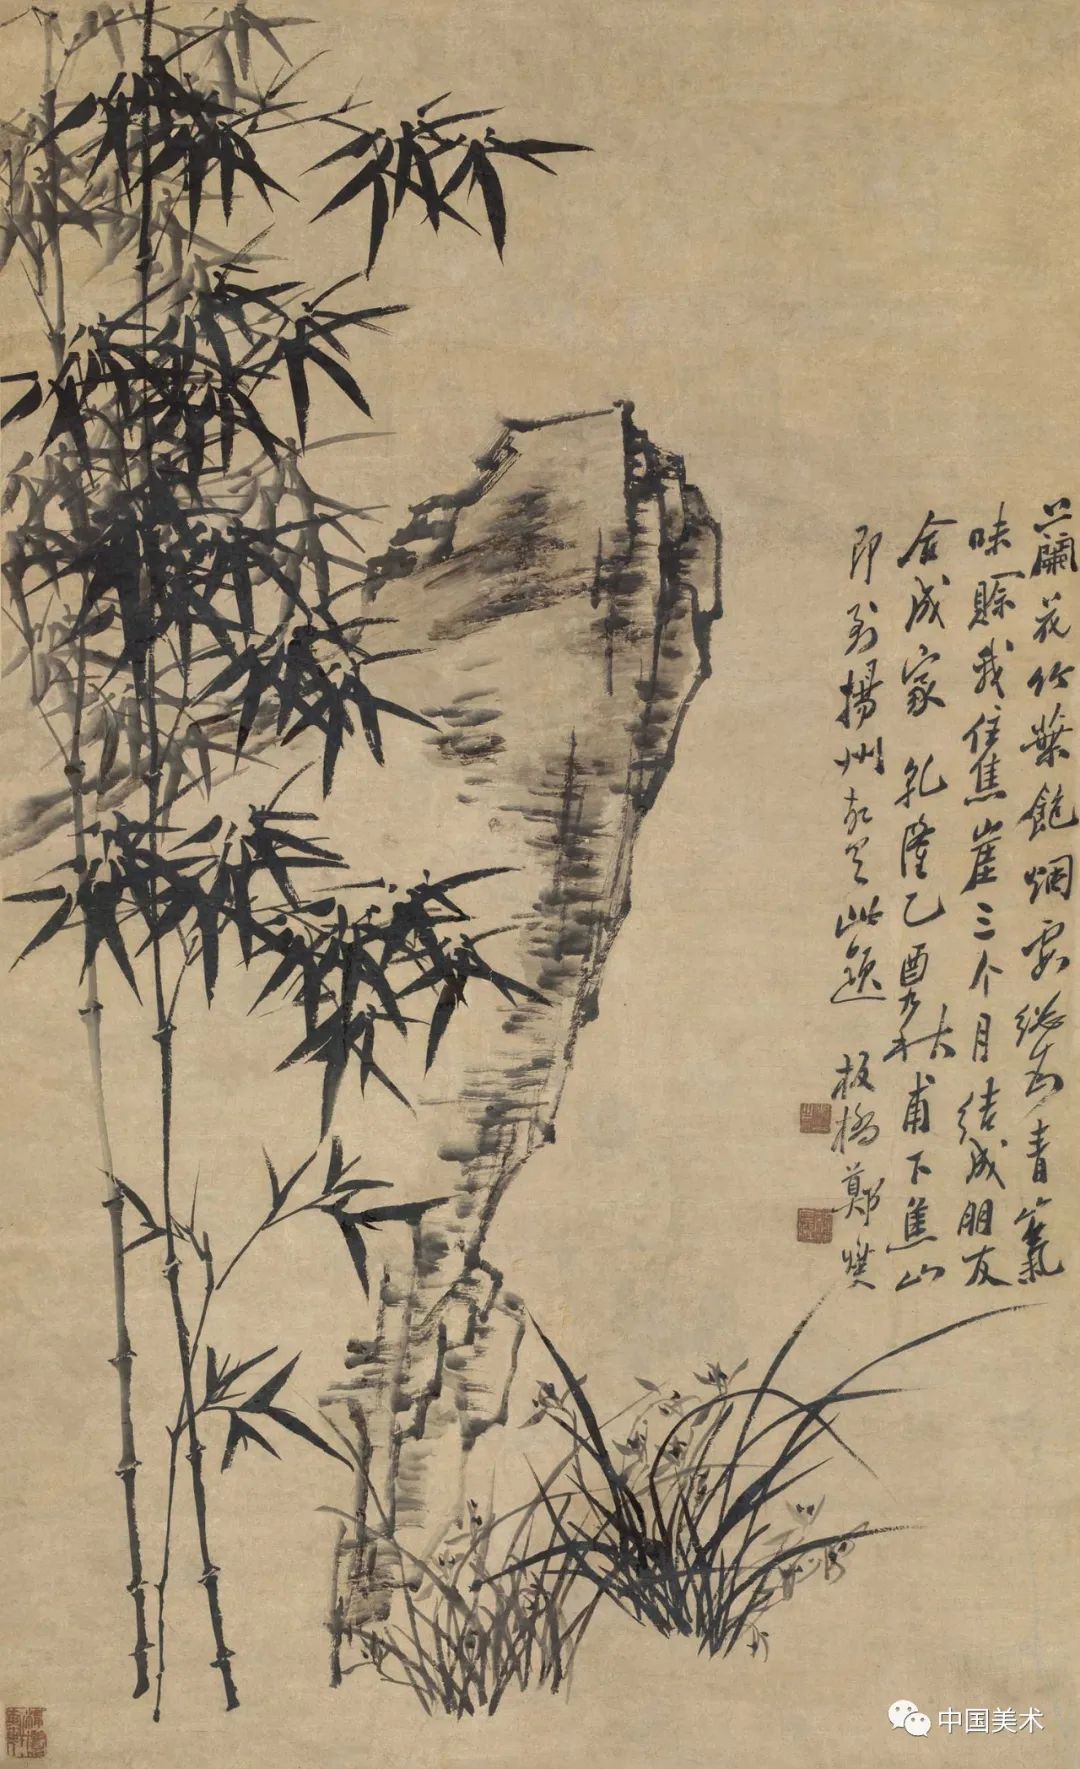 兰蘭花竹葉飽烟霞總與青氣
味一賒我住焦崖三个月結成朋友
合成家 乾隆乙酉九秋甫下焦山
即到揚州 此題 板橋鄭燮
中国美术